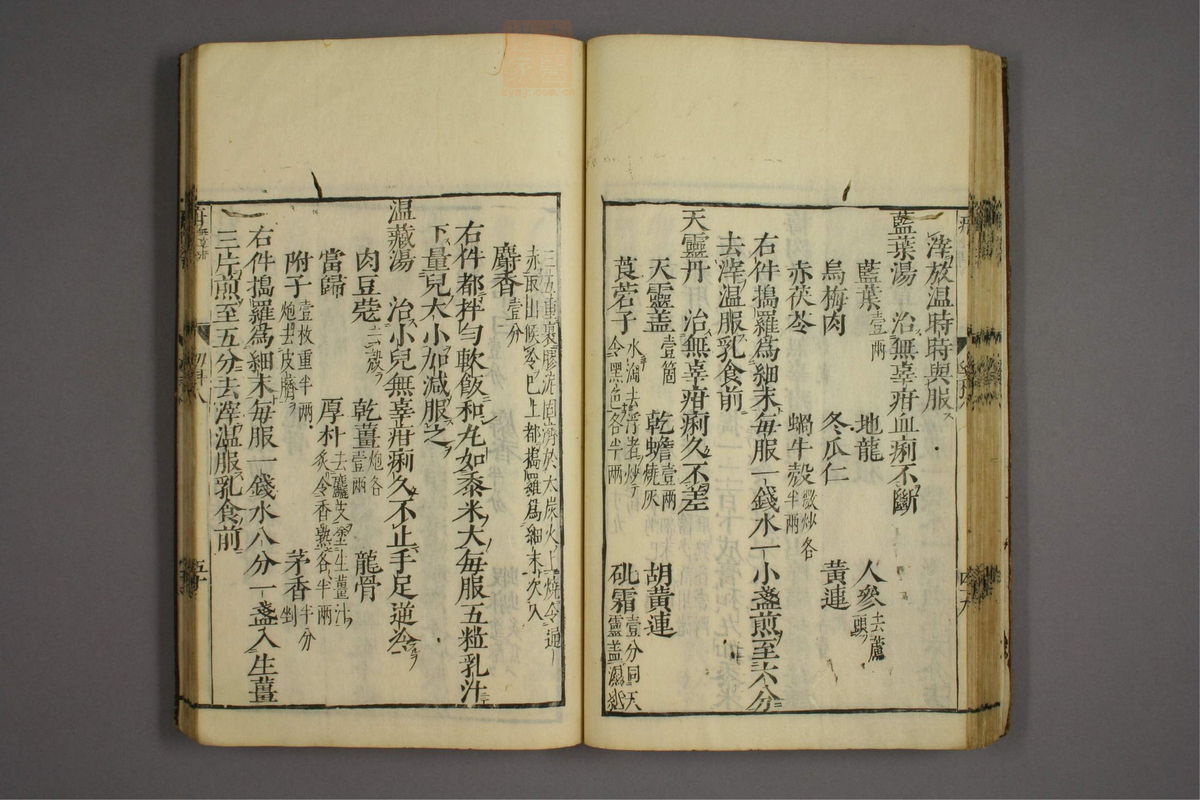 滓放温時時與服
藍葉湯 治無辜疳血痢不斷
藍葉壹兩 地龍 人參去蘆頭
烏梅肉 冬瓜仁 黃連
赤茯苓 蝸牛殼微炒各半兩
右件搗羅為細末每服一錢水一小盞煎至六分
去滓温服乳食前
天靈丹 治無辜疳痢久不差
天靈盖壹箇 乾蟾壹兩燒灰 胡黃連
莨菪子水淘去浮者炒令黑色各半兩 砒霜壹分同天靈盖濕紙
三五重裹膠泥固濟於大炭火上燒令通
赤取出候冷已上都搗羅為細末次入
麝香壹分
右件都拌勻軟飯和丸如黍米大每服五粒乳汁
下量兒大小加減服之
温藏湯 治小兒無辜疳痢久不止手足逆冷
肉豆蔻去殼 乾薑炮各壹兩 龍骨
當歸 厚朴去麤皮塗生薑汁炙令香熟各半兩
附子壹枚重半兩炮去皮臍 茅香半分剉
右件搗羅為細末每服一錢水八分一盞入生薑
二片煎至五分去滓温服乳食前